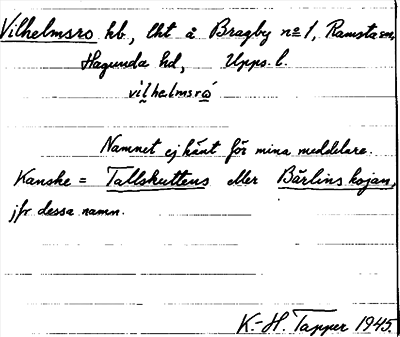 Vilhelmsro hb, lht å Bragby nº 1, Ramsta sn,
Hagunda hd, Upps. l.
vilhelmsró
Namnet ej känt för mina meddelare.
Kanske = Tallskuttens eller Bärlins kojan,
jfr dessa namn.
K.-H. Tapper 1945.